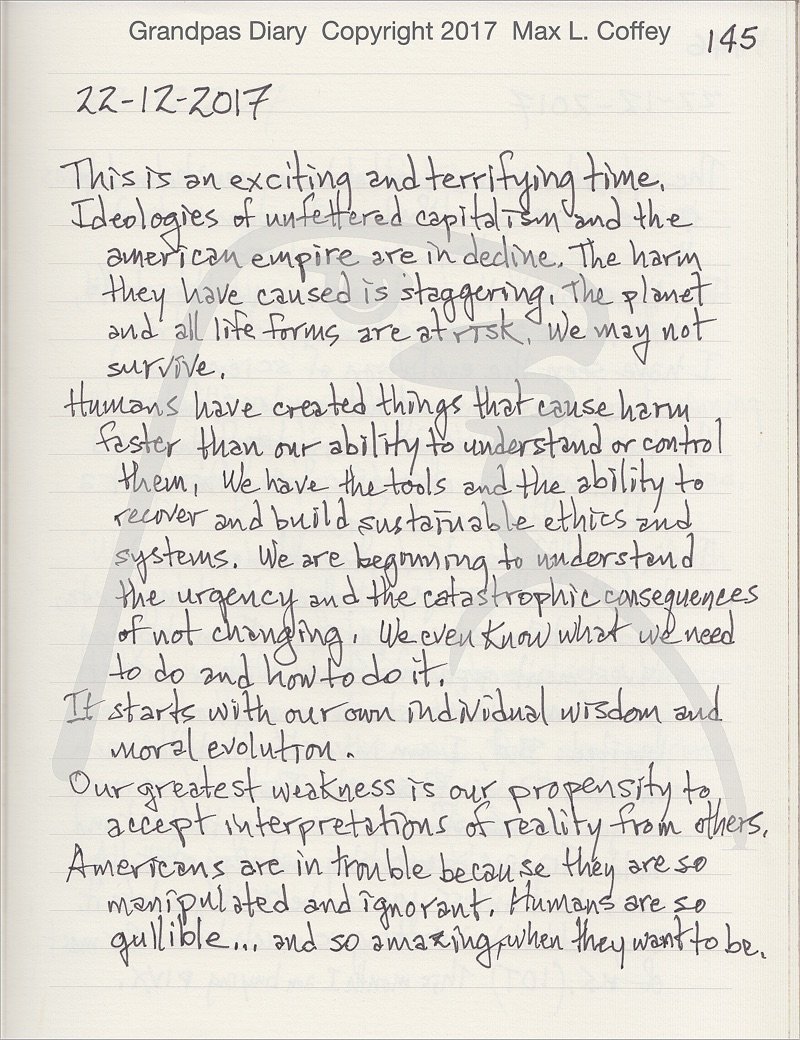 Grandpas Diary Copyright 2017 Max L. Coffey
145
22-12-2017
This is an exciting and terrifying time.
Ideologies of unfettered capitalism and the
american empire are in decline. The harm
they have caused is staggering. The planet
and all life forms are at risk. We may not
survive.
Humans have created things that cause harm
faster than our ability to understand or control
them. We have the tools and the ability to
recover and build sustainable ethics and
systems. We are beginning to understand
the urgency and the catastrophic consequences
of not changing. We even know what we need
to do and how to do it.
It starts with our own individual wisdom and
moral evolution.
Our greatest weakness is our propensity to
accept interpretations of reality from others.
Americans are in trouble because they are so
manipulated and ignorant. Humans are so
gullible... and so amazing, when they want to be.